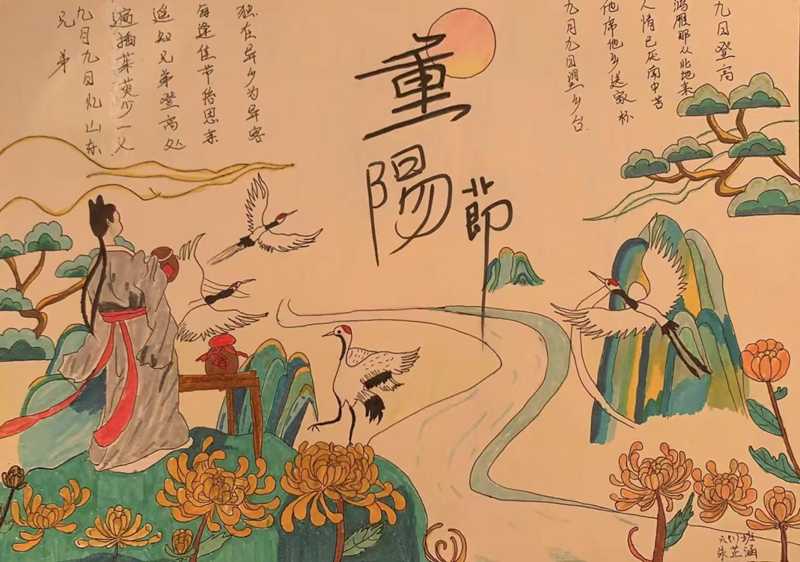 重陽節
九日登高
鸿雁那从北地来
人情已厌南中苦
他席他乡送客杯
九月九日望乡台
独在异乡为异客
每逢佳节倍思亲
遥知兄弟登高处
遍插茱萸少一人
九月九日忆山东
兄弟
六(1)班
朱芷涵